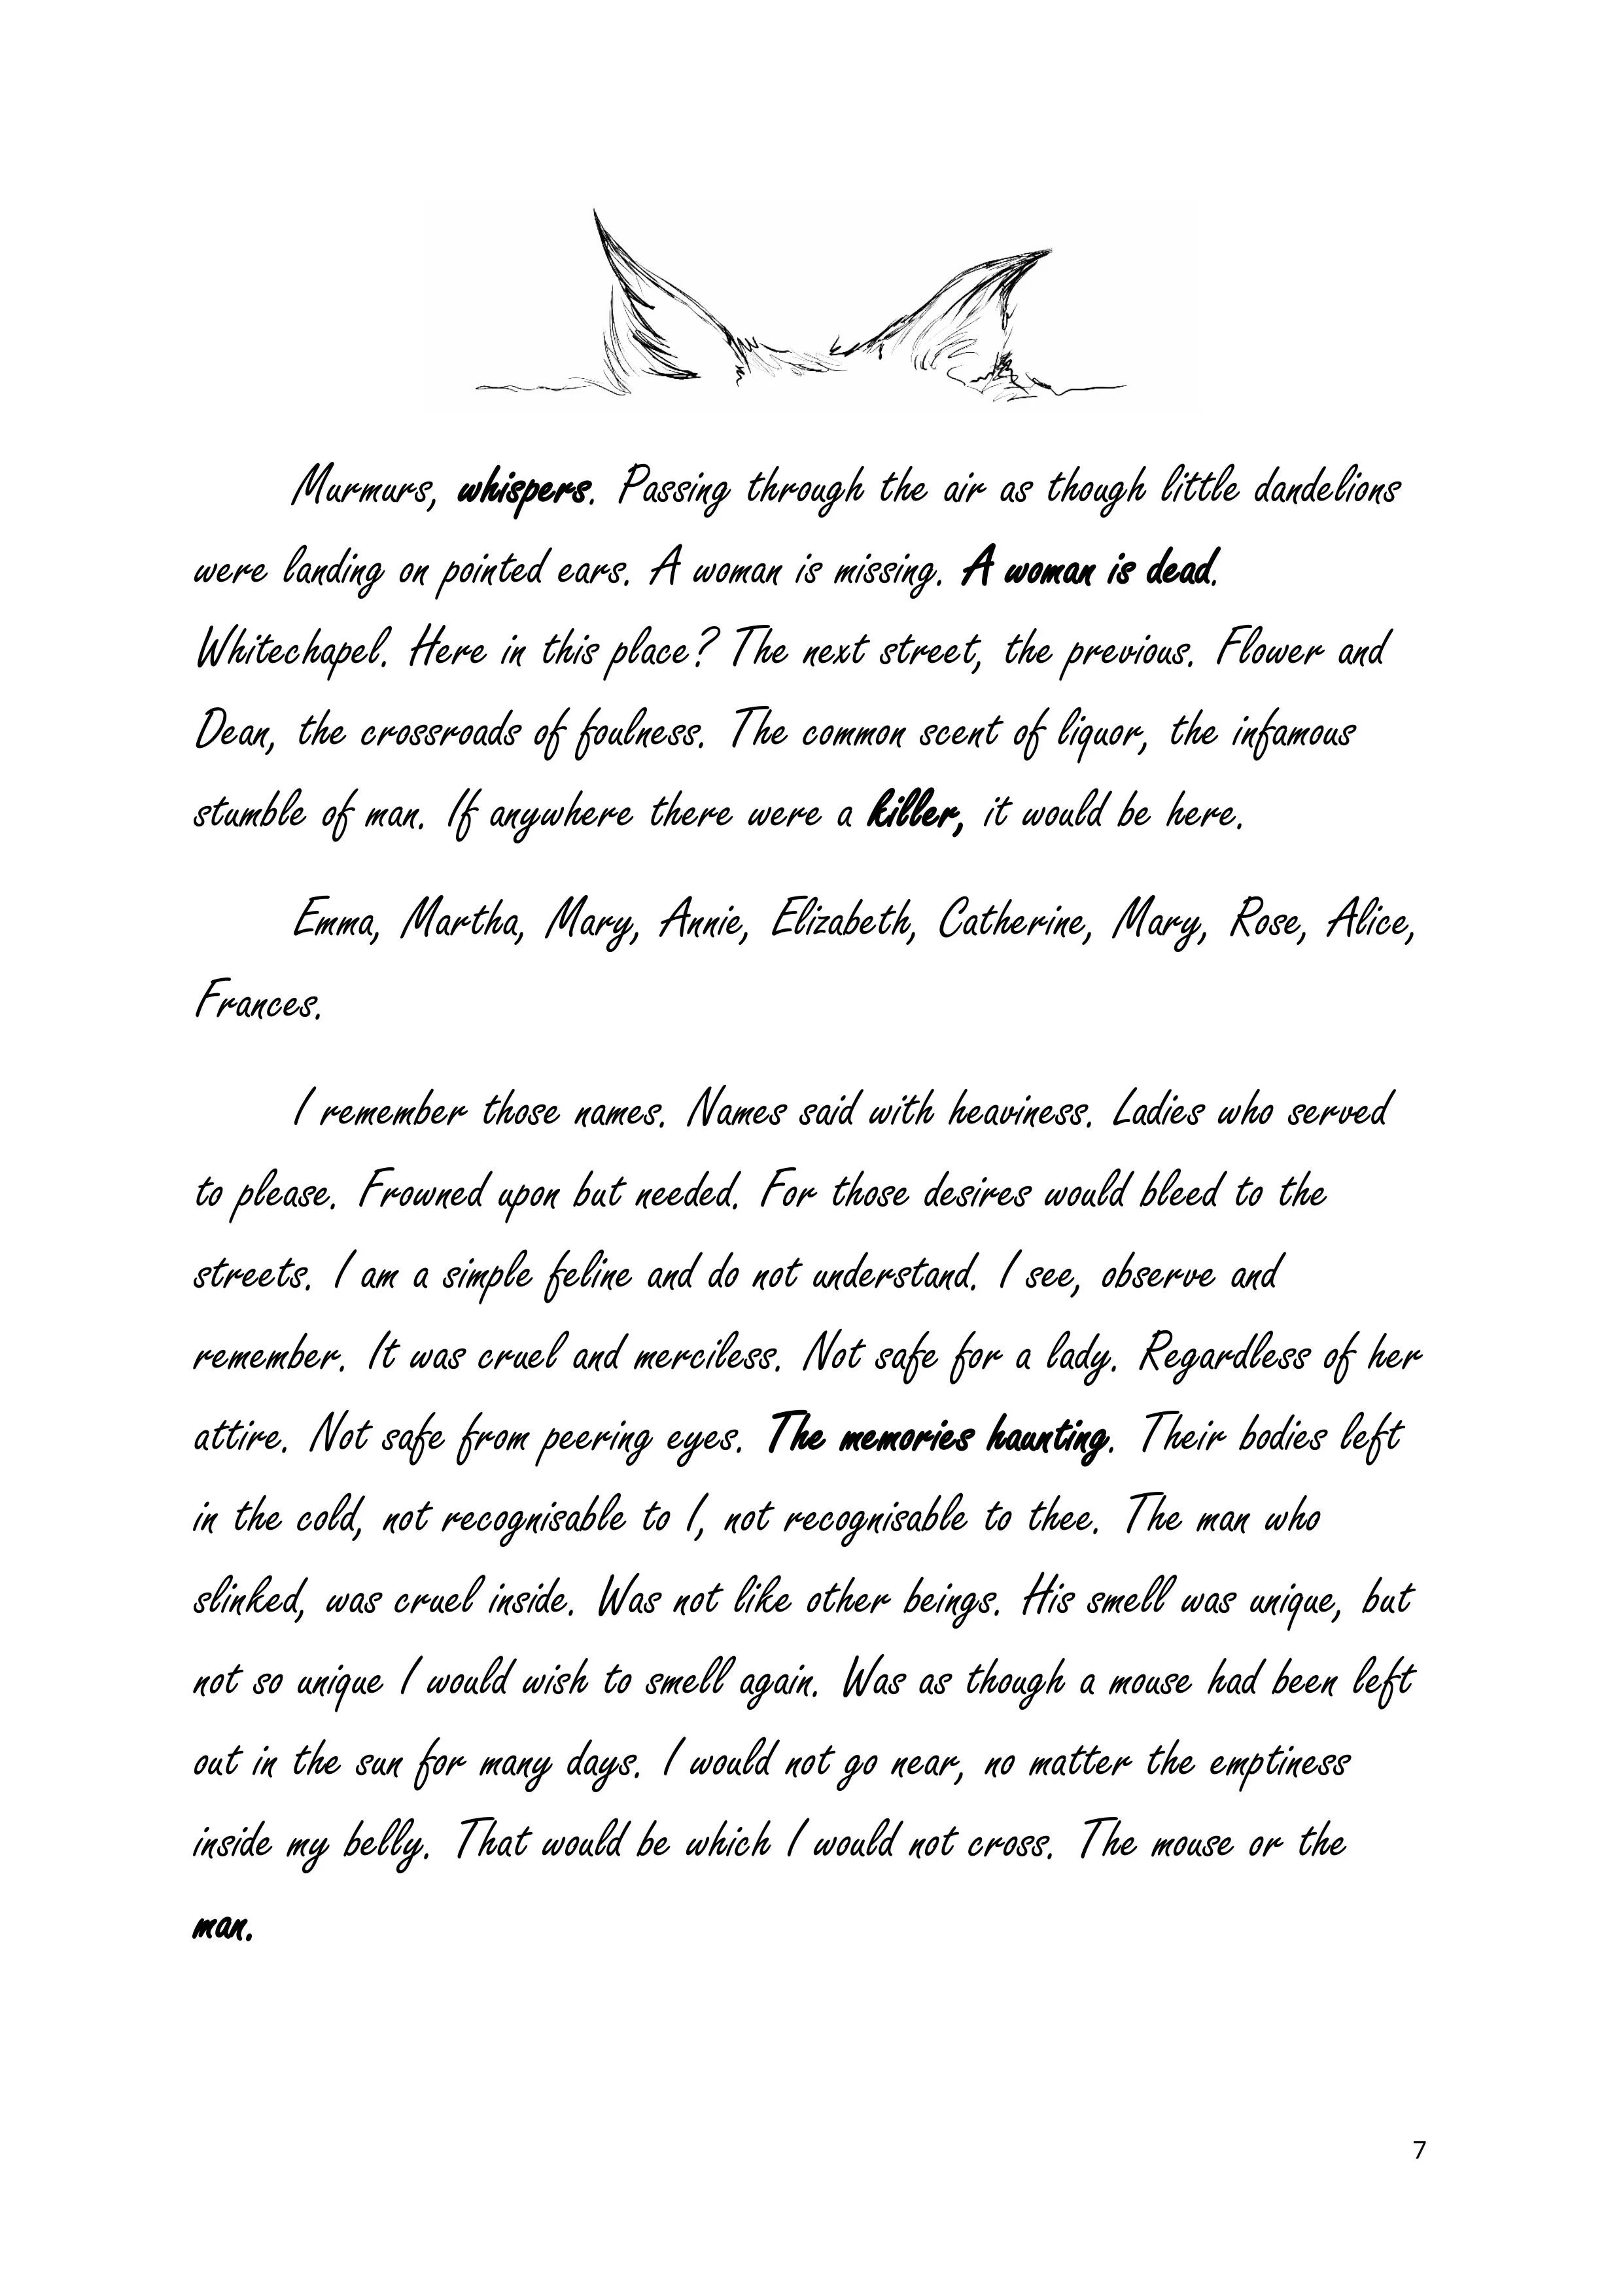 Murmurs, whispers. Passing through the air as though little dandelions
were landing on pointed ears. A woman is missing. A woman is dead.
Whitechapel. Here in this place? The next street, the previous. Flower and
Dean, the crossroads of foulness. The common scent of liquor, the infamous
stumble of man. If anywhere there were a killer, it would be here.
Emma, Martha, Mary, Annie, Elizabeth, Catherine, Mary, Rose, Alice,
Frances.
I remember those names. Names said with heaviness. Ladies who served
to please. Frowned upon but needed. For those desires would bleed to the
streets. I am a simple feline and do not understand. I see, observe and
remember. It was cruel and merciless. Not safe for a lady. Regardless of her
attire. Not safe from peering eyes. The memories haunting. Their bodies left
in the cold, not recognisable to I, not recognisable to thee. The man who
slinked, was cruel inside. Was not like other beings. His smell was unique, but
not so unique I would wish to smell again. Was as though a mouse had been left
out in the sun for many days. I would not go near, no matter the emptiness
inside my belly. That would be which I would not cross. The mouse or the
man.
7